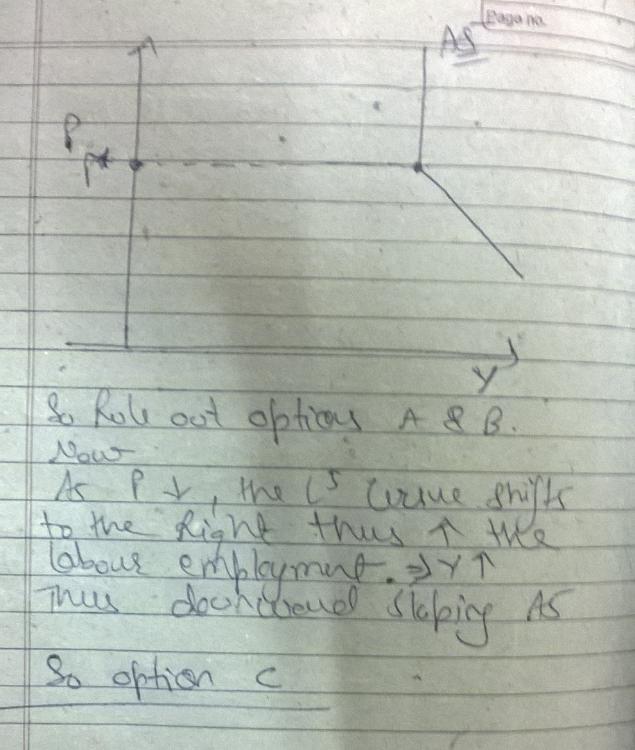 Page No.
AS
P
P*
Y
So Rule out options A & B.
Now
As P ↓, the L^S Curve shifts
to the Right thus ↑ the
labour employment. ⇒ Y ↑
Thus downward sloping AS
So option C